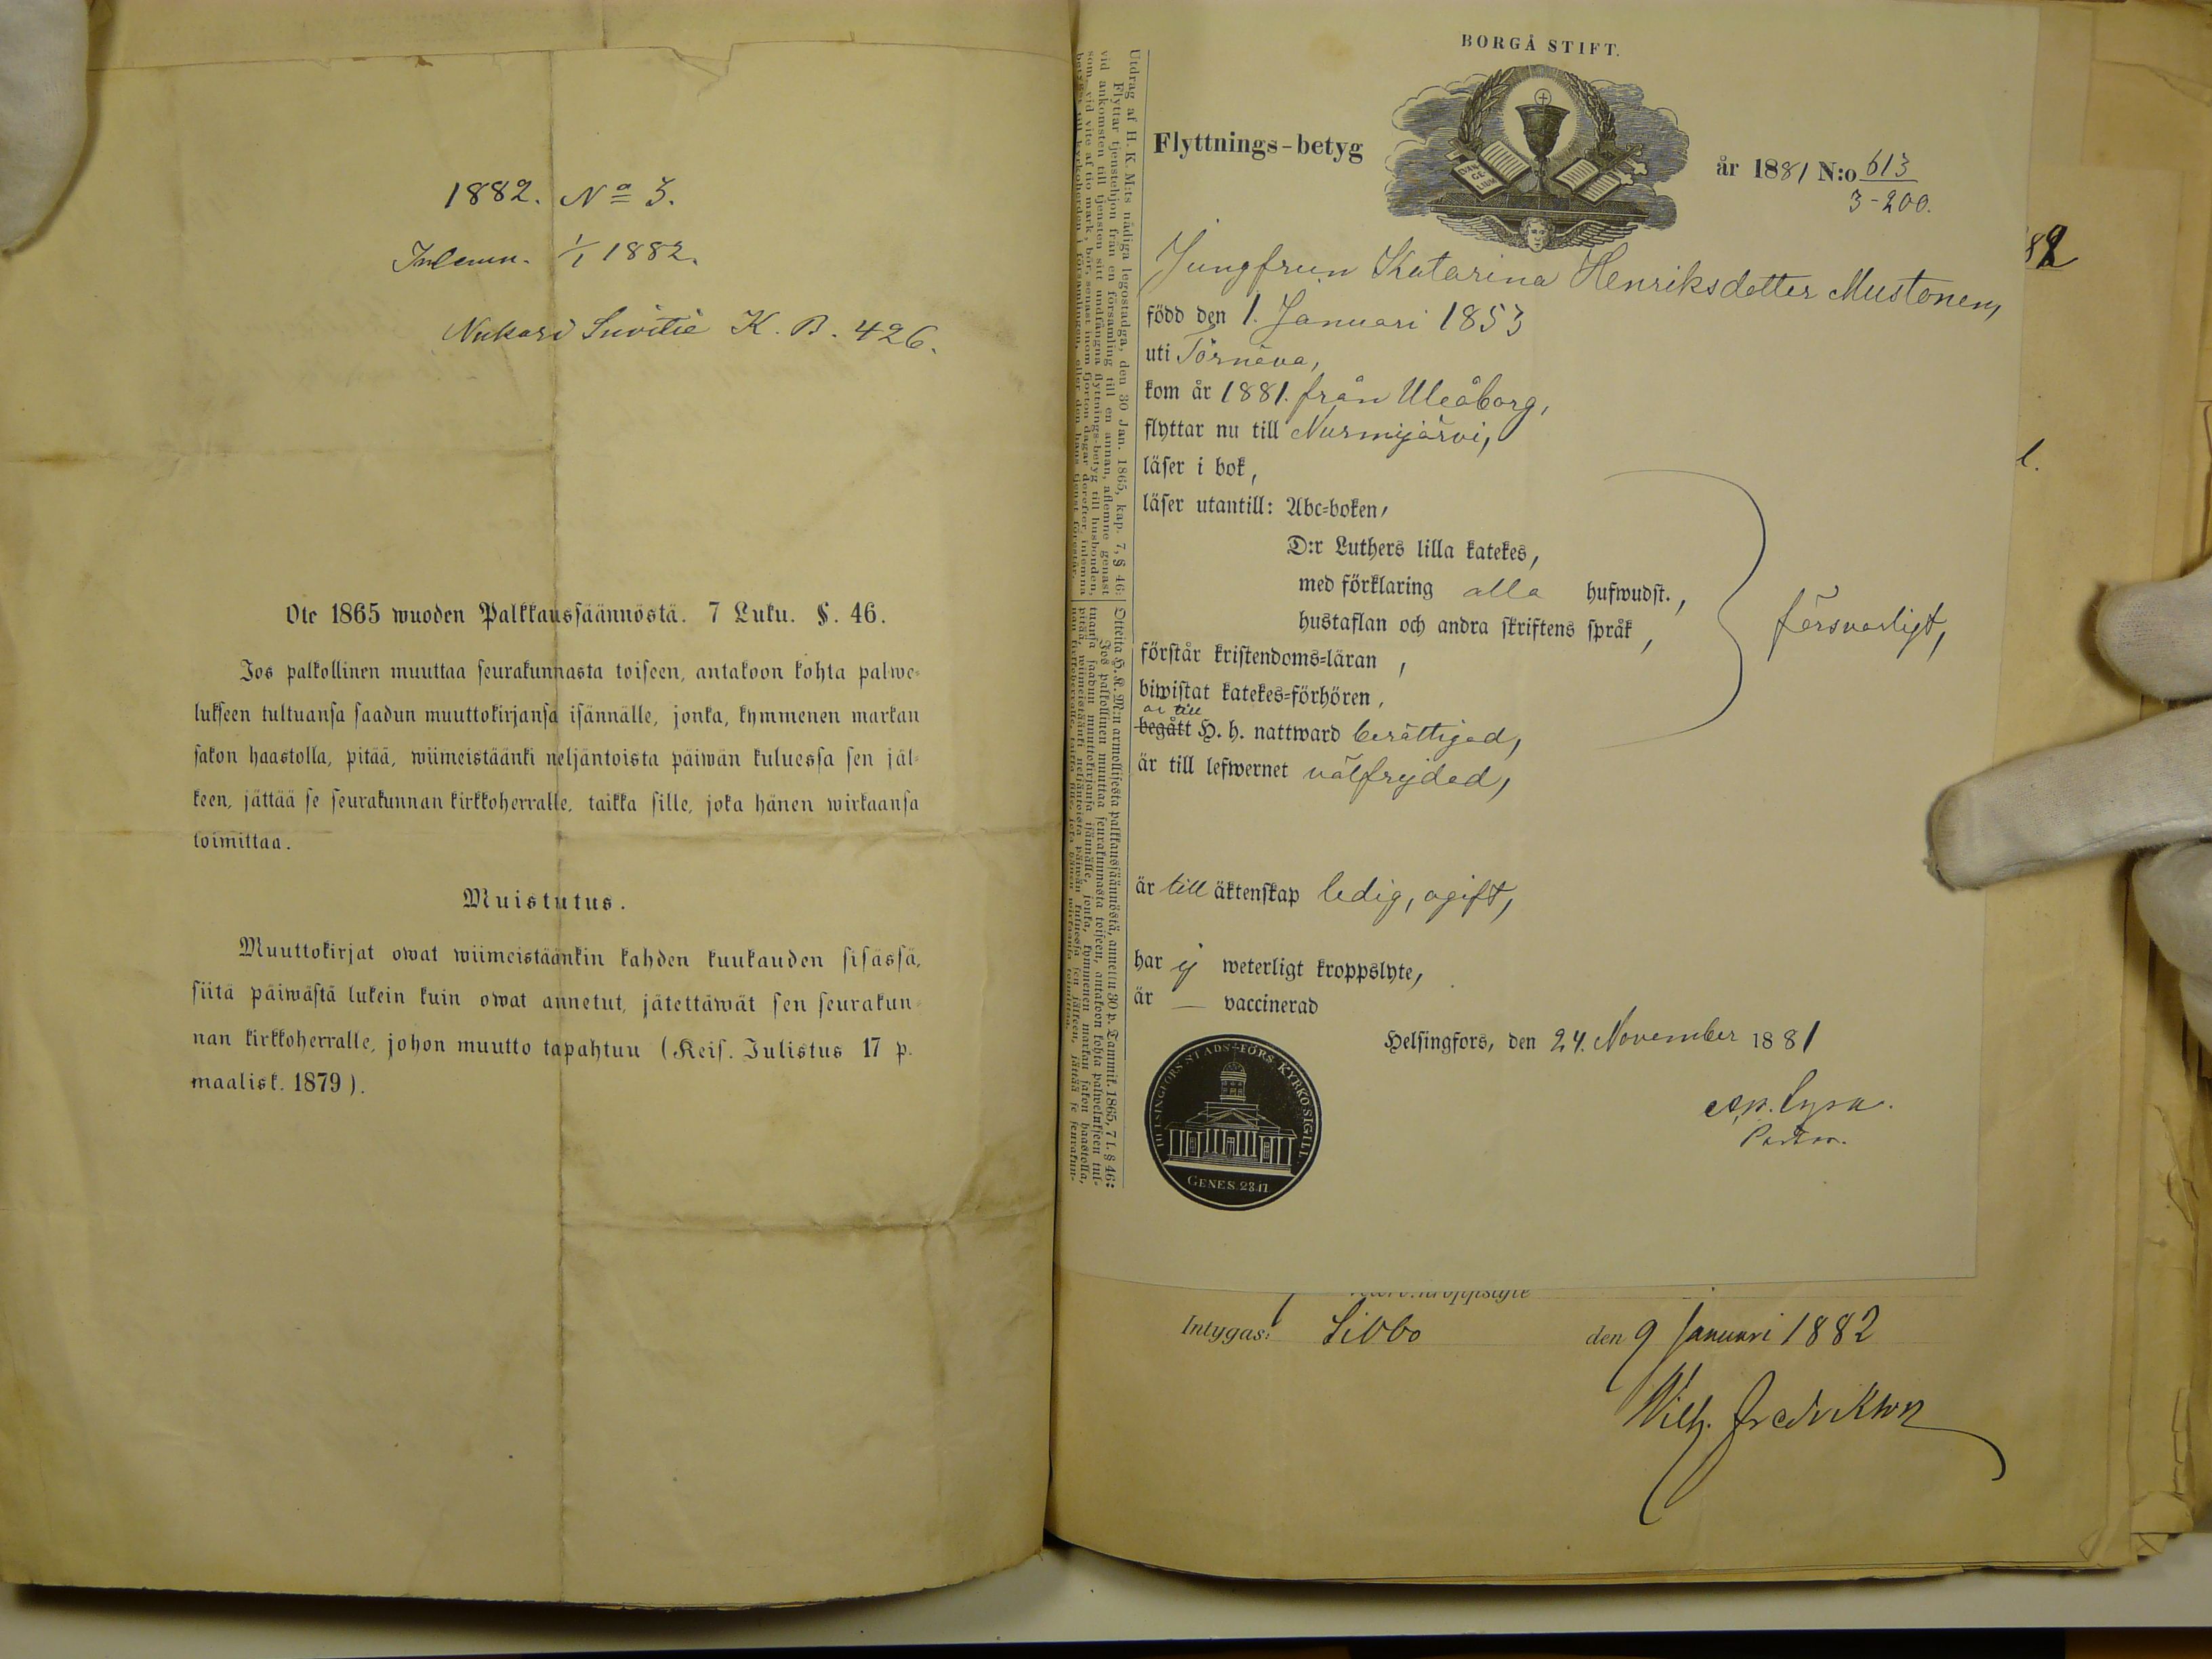 1882. No 3.
Inlemn. 1/1 1882.
Nukari Suvitie K. B. 426.
Ote 1865 wuoden Palkkaussäännöstä. 7 Luku. §. 46.
Jos palkollinen muuttaa seurakunnasta toiseen, antakoon kohta palwe-
lukseen tultuansa saadun muuttokirjansa isännälle, jonka, kymmenen markan
sakon haastolla, pitää, wiimeistäänki neljäntoista päiwän kuluessa sen jäl-
keen, jättää se seurakunnan kirkkoherralle, taikka sille, joka hänen wirkaansa
toimittaa.
Muistutus.
Muuttokirjat owat wiimeistäänkin kahden kuukauden sisässä,
siitä päiwästä lukein kuin owat annetut, jätettäwät sen seurakun-
nan kirkkoherralle, johon muutto tapahtuu (Keis. Julistus 17 p.
maalisk. 1879).
BORGÅ STIFT.
Flyttnings-betyg
år 1881 N:o 613
3-200.
Jungfrun Katarina Henriksdotter Mustonen,
född den 1. Januari 1853
uti Törnävä,
kom år 1881. från Uleåborg,
flyttar nu till Nurmijärvi,
läser i bok,
läser utantill: Abc-boken,
D:r Luthers lilla katekes,
med förklaring alla hufwudst.,
hustaflan och andra skriftens språk,
försvarligt,
förstår kristendoms-läran,
biwistat katekes-förhören,
är till
begått H. h. nattward berättigad,
är till lefwernet välfrejdad,
är till äktenskap ledig, ogift,
har ej weterligt kroppslyte,
är — vaccinerad
Helsingfors, den 24. November 1881
HELSINGFORS STADS-FÖRS. KYRKO SIGILL.
GENES. 28.17
Utdrag af H. K. M:ts nådiga legostadga, den 30 Jan. 1865, kap. 7, § 46:
Flyttar tjenstehjon från en församling till en annan, aflemne genast
vid ankomsten till tjensten sitt undfångna flyttnings-betyg till husbonden,
som, vid vite af tio mark, bör, senast inom fjorton dagar derefter, inlemna
Otteita H. K. M:n armollisesta palkkaussäännöstä, annettu 30 p. Tammik. 1865, 7 l. § 46:
Jos palkollinen muuttaa seurakunnasta toiseen, antakoon kohta palwelukseen tul-
tuansa saadun muuttokirjansa isännälle, jonka, kymmenen markan sakon haastolla,
Intygas: Sibbo den 9 Januari 1882
Wilh. Fredrikson